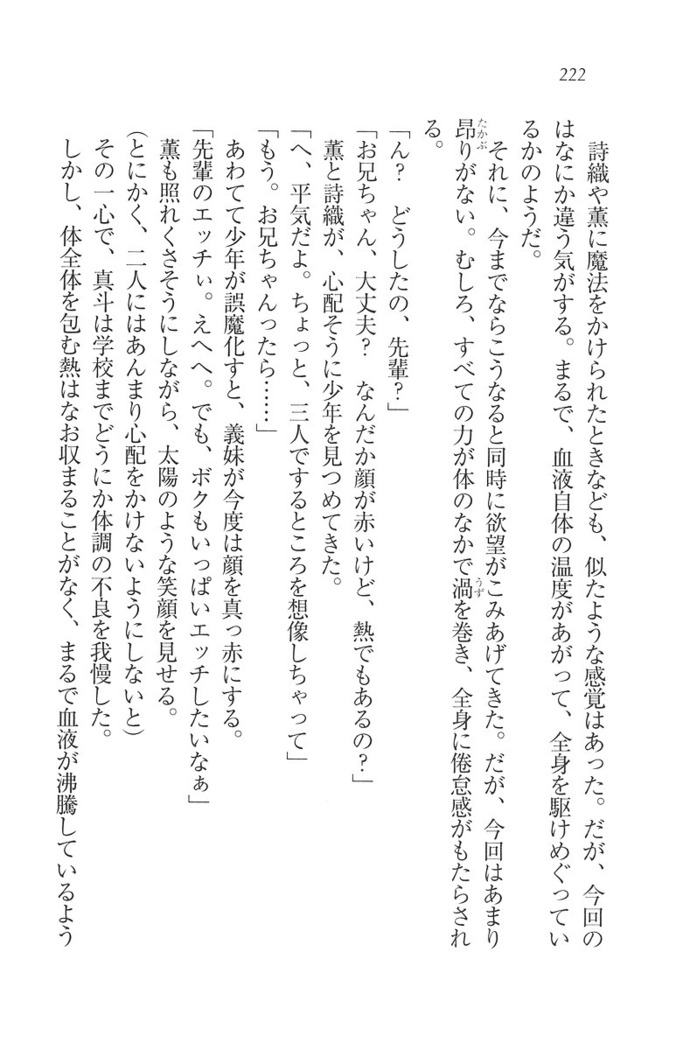 222
詩織や薫に魔法をかけられたときなども、似たような感覚はあった。だが、今回の
はなにか違う気がする。まるで、血液自体の温度があがって、全身を駆けめぐってい
るかのようだ。
それに、今までならこうなると同時に欲望がこみあげてきた。だが、今回はあまり
昂りがない。むしろ、すべての力が体のなかで渦を巻き、全身に倦怠感がもたらされ
たかぶ
うず
る。
「ん？　どうしたの、先輩？」
「お兄ちゃん、大丈夫？　なんだか顔が赤いけど、熱でもあるの？」
薫と詩織が、心配そうに少年を見つめてきた。
「へ、平気だよ。ちょっと、三人でするところを想像しちゃって」
「もう。お兄ちゃんったら……」
あわてて少年が誤魔化すと、義妹が今度は顔を真っ赤にする。
「先輩のエッチぃ。えへへ。でも、ボクもいっぱいエッチしたいなぁ」
薫も照れくさそうにしながら、太陽のような笑顔を見せる。
（とにかく、二人にはあんまり心配をかけないようにしないと）
その一心で、真斗は学校までどうにか体調の不良を我慢した。
しかし、体全体を包む熱はなお収まることがなく、まるで血液が沸騰しているよう